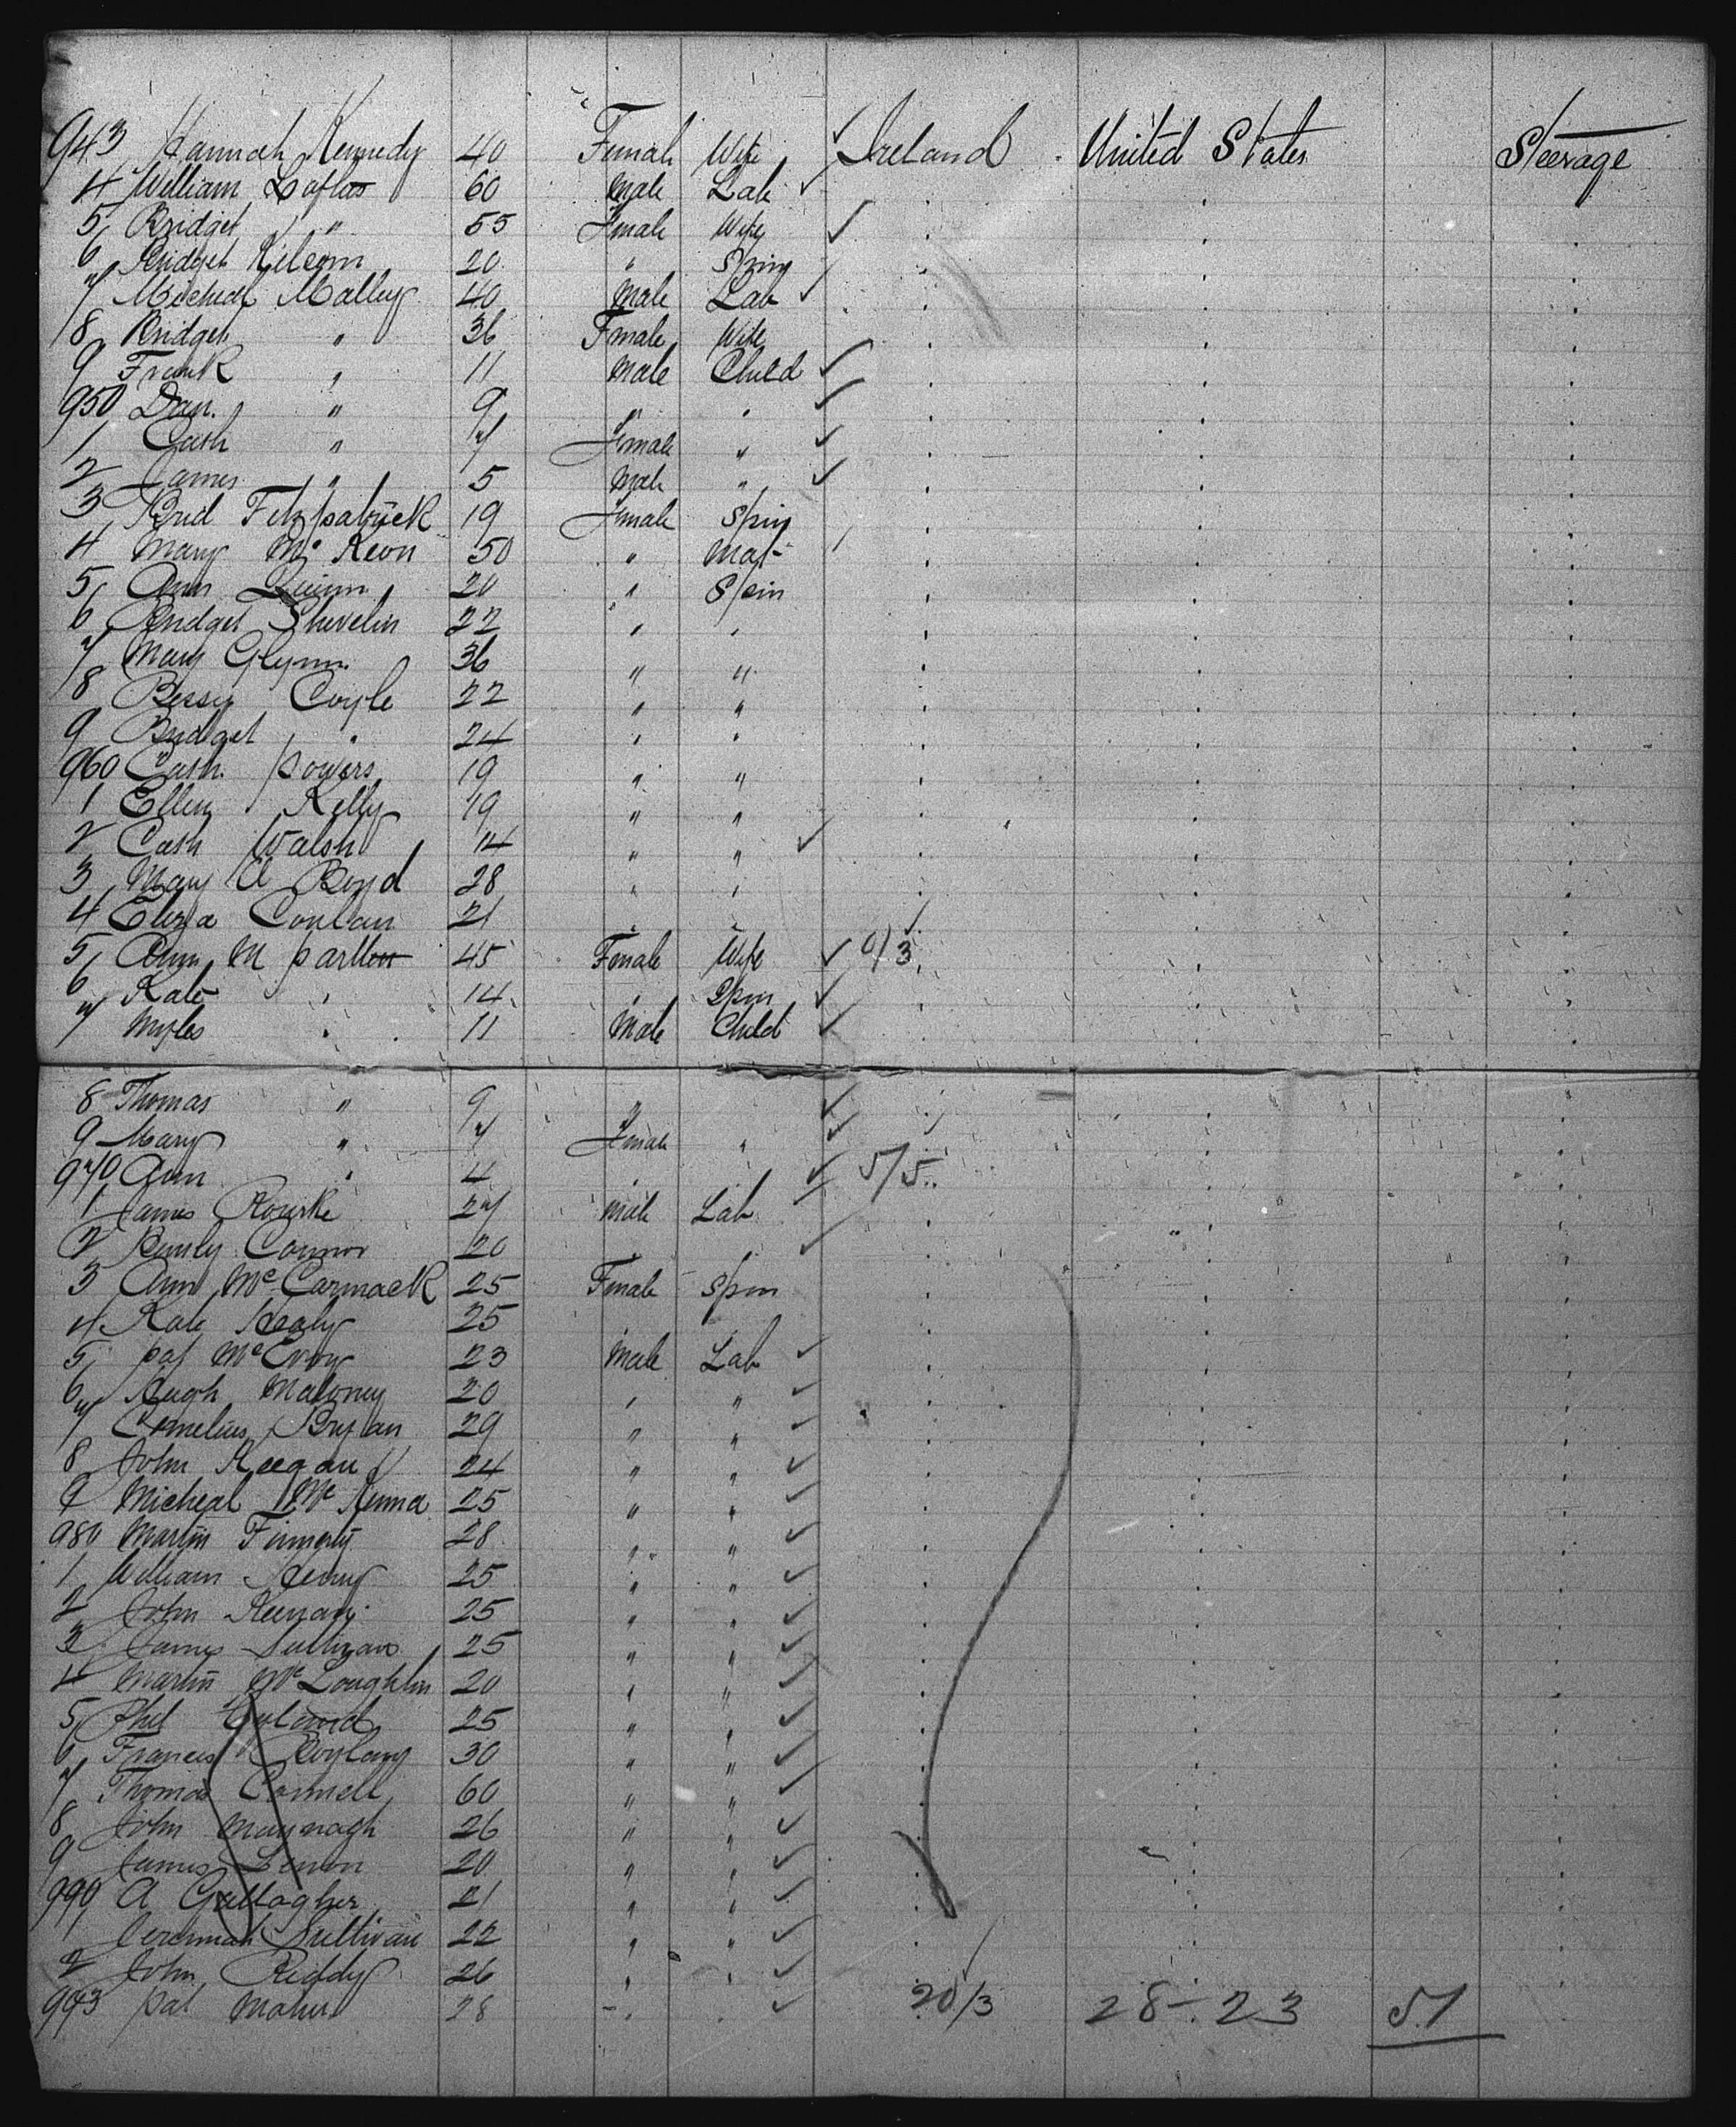 943 Hannah Kennedy 40 Female Wife ✓ Ireland United States Steerage
4 William 60 Male Lab ✓
5 Bridget " 55 Female Wife ✓
6 Bridget 20 " Spin
7 Micheal Malley 40 Male Lab ✓
8 Bridget " 36 Female Wife
9 Frank " 11 Male Child ✓
950 Dan. " 9 " " ✓
1 Cath " 7 Female " ✓
2 James " 5 Male " ✓
3 Brid Fitzpatrick 19 Female Spin
4 Mary Mc Keon 50 " Mat
5 Ann Quinn 20 " Spin
6 Bridget Shevelin 22 " "
7 Mary Glynn 36 " "
8 Bessy Coyle 22 " "
9 Bridget " 24 " "
960 Cath. Powers 19 " "
1 Ellen Kelly 19 " "
2 Cath Walsh 14 " " ✓
3 Mary A Boyd 28 " "
4 Eliza Conlan 21 " "
5 Ann M partlen 45 Female Wife ✓ 9/3
6 Kate " 14 " Spin ✓
7 Myles " 11 Male Child ✓
8 Thomas " 9 " ✓
9 Mary " 7 Female " ✓
970 Ann " 4 " ✓ 5/5
1 James Rourke 27 Male Lab ✓
2 Connor 20 ✓
3 Ann Mc Carmack 25 Female Spin
4 Kate Healy 25
5 Pat McEvoy 23 Male Lab ✓
6 Hugh Maloney 20 " " ✓
7 Cornelius Bryan 29 " " ✓
8 John Keegan 24 " " ✓
9 Micheal Mc Kenna 25 " " ✓
980 Martin Finnerty 28 " " ✓
1 William Henry 25 " " ✓
2 John Keenan 25 " " ✓
3 James Sullivan 25 " " ✓
4 Martin Mc Loughlin 20 " " ✓
5 Phil 25 " " ✓
6 Francis Boylan 30 " " ✓
7 Thomas Connell 60 " " ✓
8 John 26 " " ✓
9 James Lennon 20 " " ✓
990 A Gallagher 21 " " ✓
1 Jeremiah Sullivan 22 " " ✓
2 John Reddy 26 " " ✓
993 Pat Maher 28 " " ✓ 20/3 28-23 51